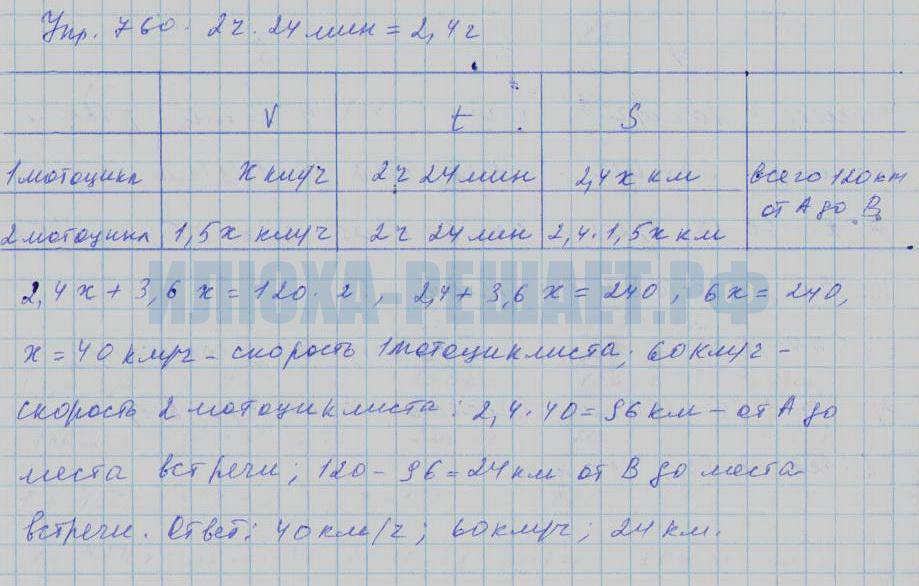 Упр. 760. 2ч. 24мин = 2,4ч
V t S
1мотоцикл x км/ч 2ч 24мин 2,4x км всего 120км
от А до В
2мотоцикл 1,5x км/ч 2ч 24мин 2,4·1,5x км
ИЛЮХА-РЕШАЕТ.РФ
2,4x + 3,6x = 120·2, 2,4 + 3,6x = 240, 6x = 240,
x = 40 км/ч – скорость 1мотоциклиста; 60км/ч –
скорость 2мотоциклиста: 2,4·40 = 96км – от А до
места встречи; 120 – 96 = 24км от В до места
встречи. Ответ: 40км/ч; 60км/ч; 24км.